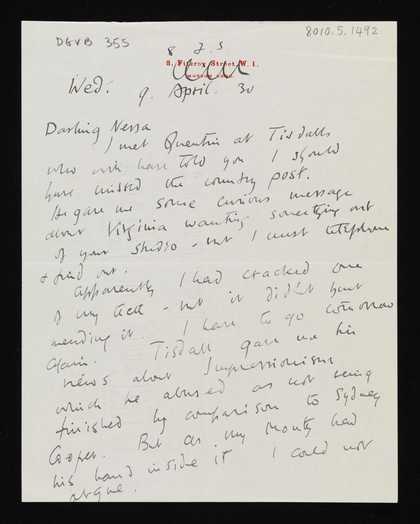 DGVB 355
8010.5.1492
8. Fitzroy Street. W. 1.
Wed. 9. April. 30
Darling Nessa
I met Quentin at Tisdalls
who will have told you I should
have missed the country post.
He gave me some curious message
about Virginia wanting something out
of your studio – but I must telephone
& find out.
Apparently I had cracked one
of my teeth – but it didn't hurt
mending it. I have to go tomorrow
again. Tisdall gave me his
news about Impressionism
which he abused as not being
finished by comparison to Sydney
Cooper. But as my mouth had
his hand inside it I could not
argue.